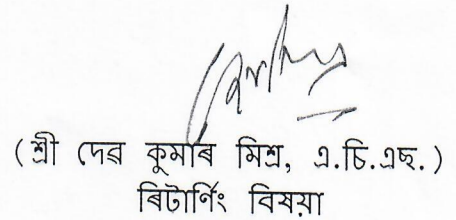 (শ্ৰী দেৱ কুমাৰ মিশ্ৰ, এ.চি.এছ.)
ৰিটাৰ্ণিং বিষয়া